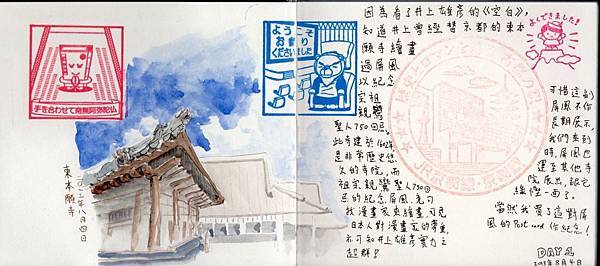 手を合わせて南無阿弥陀仏
ようこそ
お参り
くださいました
東本願寺
二〇一三年八月四日
因為看了井上雄彥的《空白》,
知道井上曾經替京都的東本
願寺繪畫
過屏風
以紀念
宗祖
親鸞
聖人750回忌,
此寺建於1602年,
是非常歷史悠
久的寺院,而
祖宗親鸞聖人750回
忌的紀念屏風,竟可
找漫畫家來繪畫,可見
日本人對漫畫家的尊重,
亦可知井上雄彥實力之
超群!
よくできました!
可惜這對
屏風不作
長期展示,
我們來到
時,屏風也
運至其他寺
院展出,故它
緣慳一面了。
當然我買了這對屏
風的Post card作紀念!
DAY 2
2013年8月4日